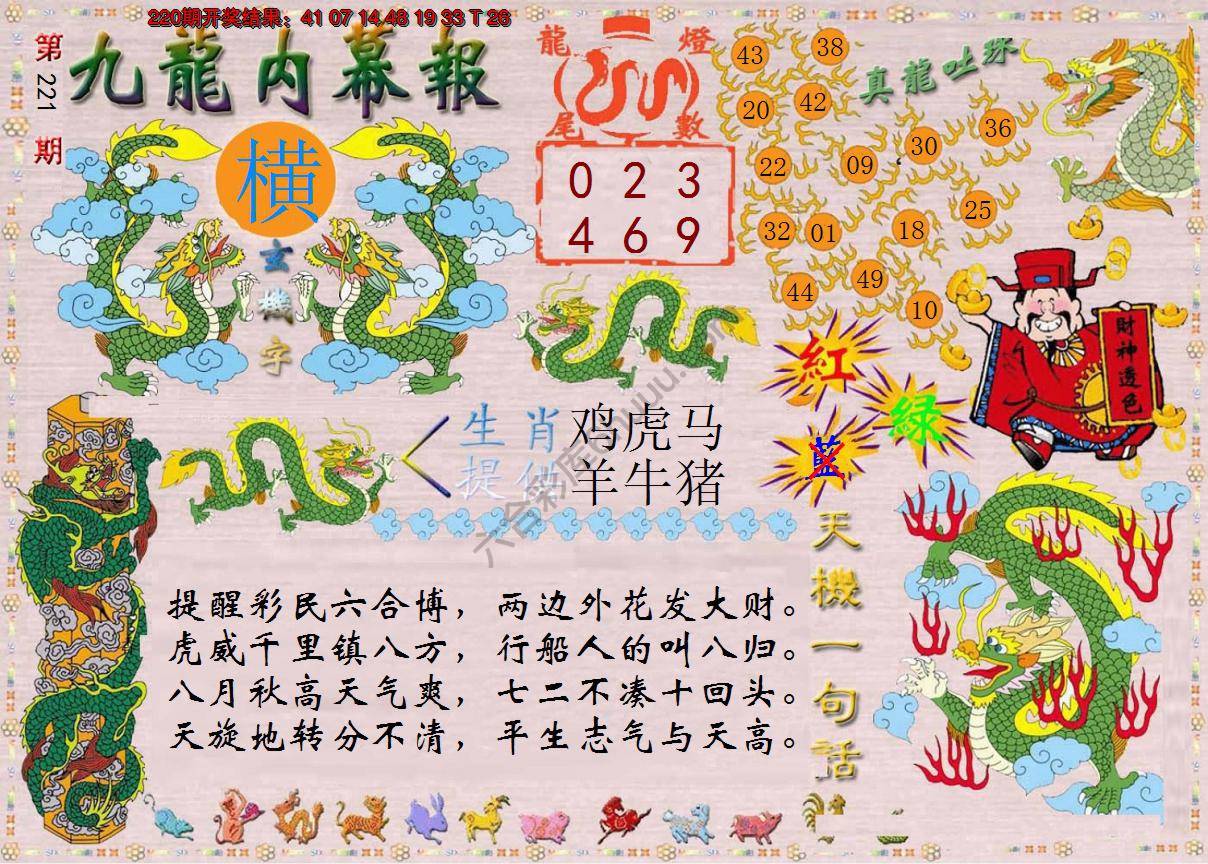 220期开奖结果：41 07 14 48 19 33 T 26
第221期
九龍内幕報
横
玄機字
龍燈
尾數
0 2 3
4 6 9
真龍吐珠
43 38
20 42
22 09 30 36
32 01 18 25
44 49 10
財神透色
紅
綠
藍
生肖 鸡虎马
提供 羊牛猪
天機一句話
提醒彩民六合博，两边外花发大财。
虎威千里镇八方，行船人的叫八归。
八月秋高天气爽，七二不凑十回头。
天旋地转分不清，平生志气与天高。